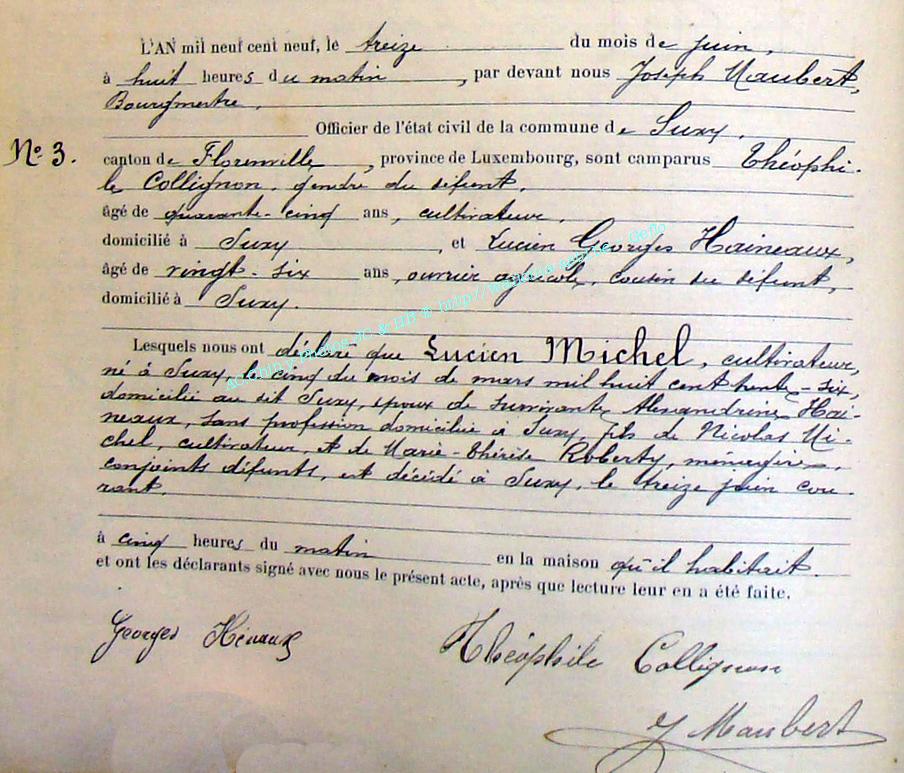 L'AN mil neuf cent neuf, le treize du mois de juin,
à huit heures du matin, par devant nous Joseph Maubert,
Bourgmestre.
Officier de l'état civil de la commune de Suxy,
N° 3.
canton de Florenville, province de Luxembourg, sont camparus Théophi-
le Collignon, gendre du défunt,
âgé de quarante-cinq ans, cultivateur,
domicilié à Suxy, et Lucien Georges Haineaux,
âgé de vingt-six ans, ouvrier agricole, cousin du défunt,
domicilié à Suxy.
Lesquels nous ont déclaré que Lucien Michel, cultivateur,
né à Suxy, le cinq du mois de mars mil huit cent trente-six,
domicilié au dit Suxy, époux de survivante Alexandrine Hai-
neaux, sans profession domiciliée à Suxy, fils de Nicolas Mi-
chel, cultivateur, et de Marie-Thérèse Roberty, ménagère,
conjoints défunts, est décédé à Suxy, le treize juin cou-
rant.
à cinq heures du matin en la maison qu'il habitait.
et ont les déclarants signé avec nous le présent acte, après que lecture leur en a été faite.
Georges Hénaux
Théophile Collignon
J Maubert